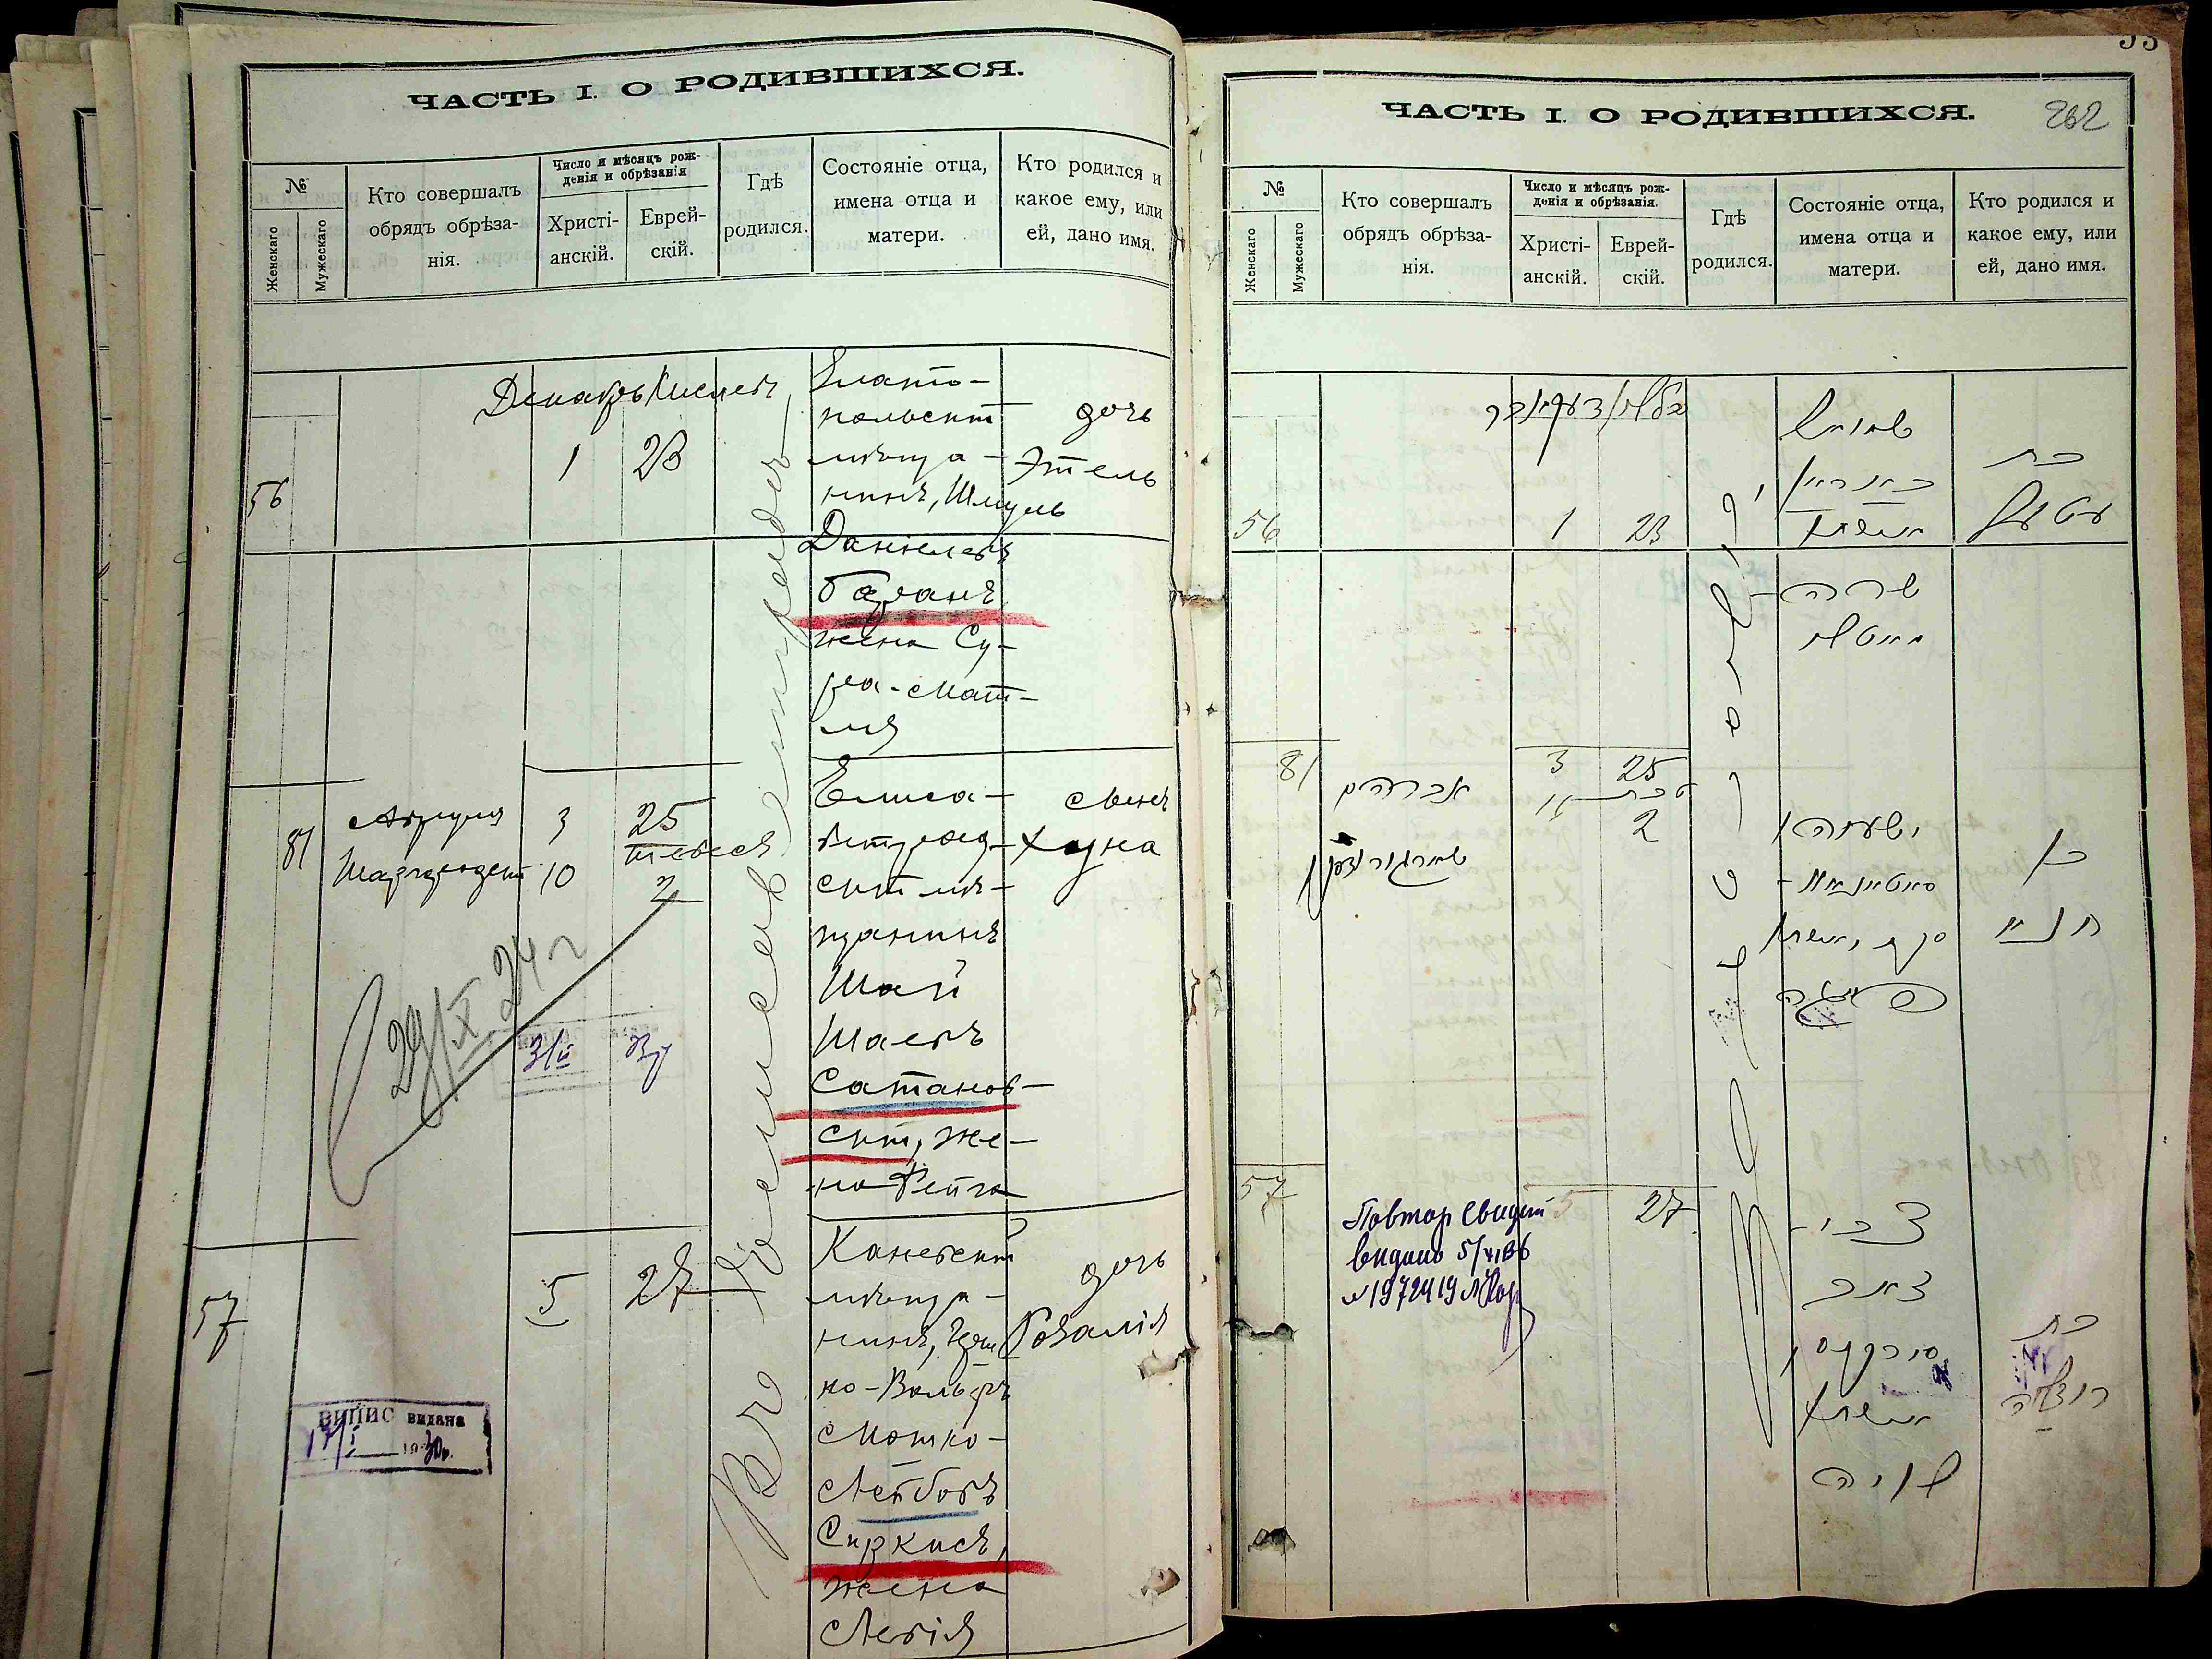 ЧАСТЬ I. О РОДИВШИХСЯ.
№
Женскаго
Мужескаго
Кто совершалъ
обрядъ обрѣза-
нія.
Число и мѣсяцъ рож-
денія и обрѣзанія
Христі-
анскій.
Еврей-
скій.
Гдѣ
родился.
Состояніе отца,
имена отца и
матери.
Кто родился и
какое ему, или
ей, дано имя.
Декабрь Кислевъ
56
1
23
Злато-
польскій
мѣща-
нинъ, Шмуль
Даніилевъ
Баранъ
жена Су-
ра-Мат-
ля
дочь
Этель
81
3
25
10
тевеса
2
Елиса-
ветград-
скій мѣ-
щанинъ
Шай
Шаевъ
Сатанов-
скій, же-
на Рейза
сынъ
Хуна
29/X 24 г
57
5
27
Каневскій
мѣща-
нинъ, Герш
ко-Вольфъ
Мошко-
Лейбовъ
Сиркисъ,
жена
Левія
дочь
Розалія
Въ Елисаветградѣ
ВИПИС видана
ЧАСТЬ I. О РОДИВШИХСЯ.
262
№
Женскаго
Мужескаго
Кто совершалъ
обрядъ обрѣза-
нія.
Число и мѣсяцъ рож-
денія и обрѣзанія.
Христі-
анскій.
Еврей-
скій.
Гдѣ
родился.
Состояніе отца,
имена отца и
матери.
Кто родился и
какое ему, или
ей, дано имя.
56
1
23
שמואל
באראן
אשתו
שרה
מאטלי
בת
עטעל
81
אברהם
3
25
טבת
2
ישעיה
בן
חונא
57
27
צבי-
זאב
סירקיס
אשתו
בת
Повтор свидет
видано 5/VI 36